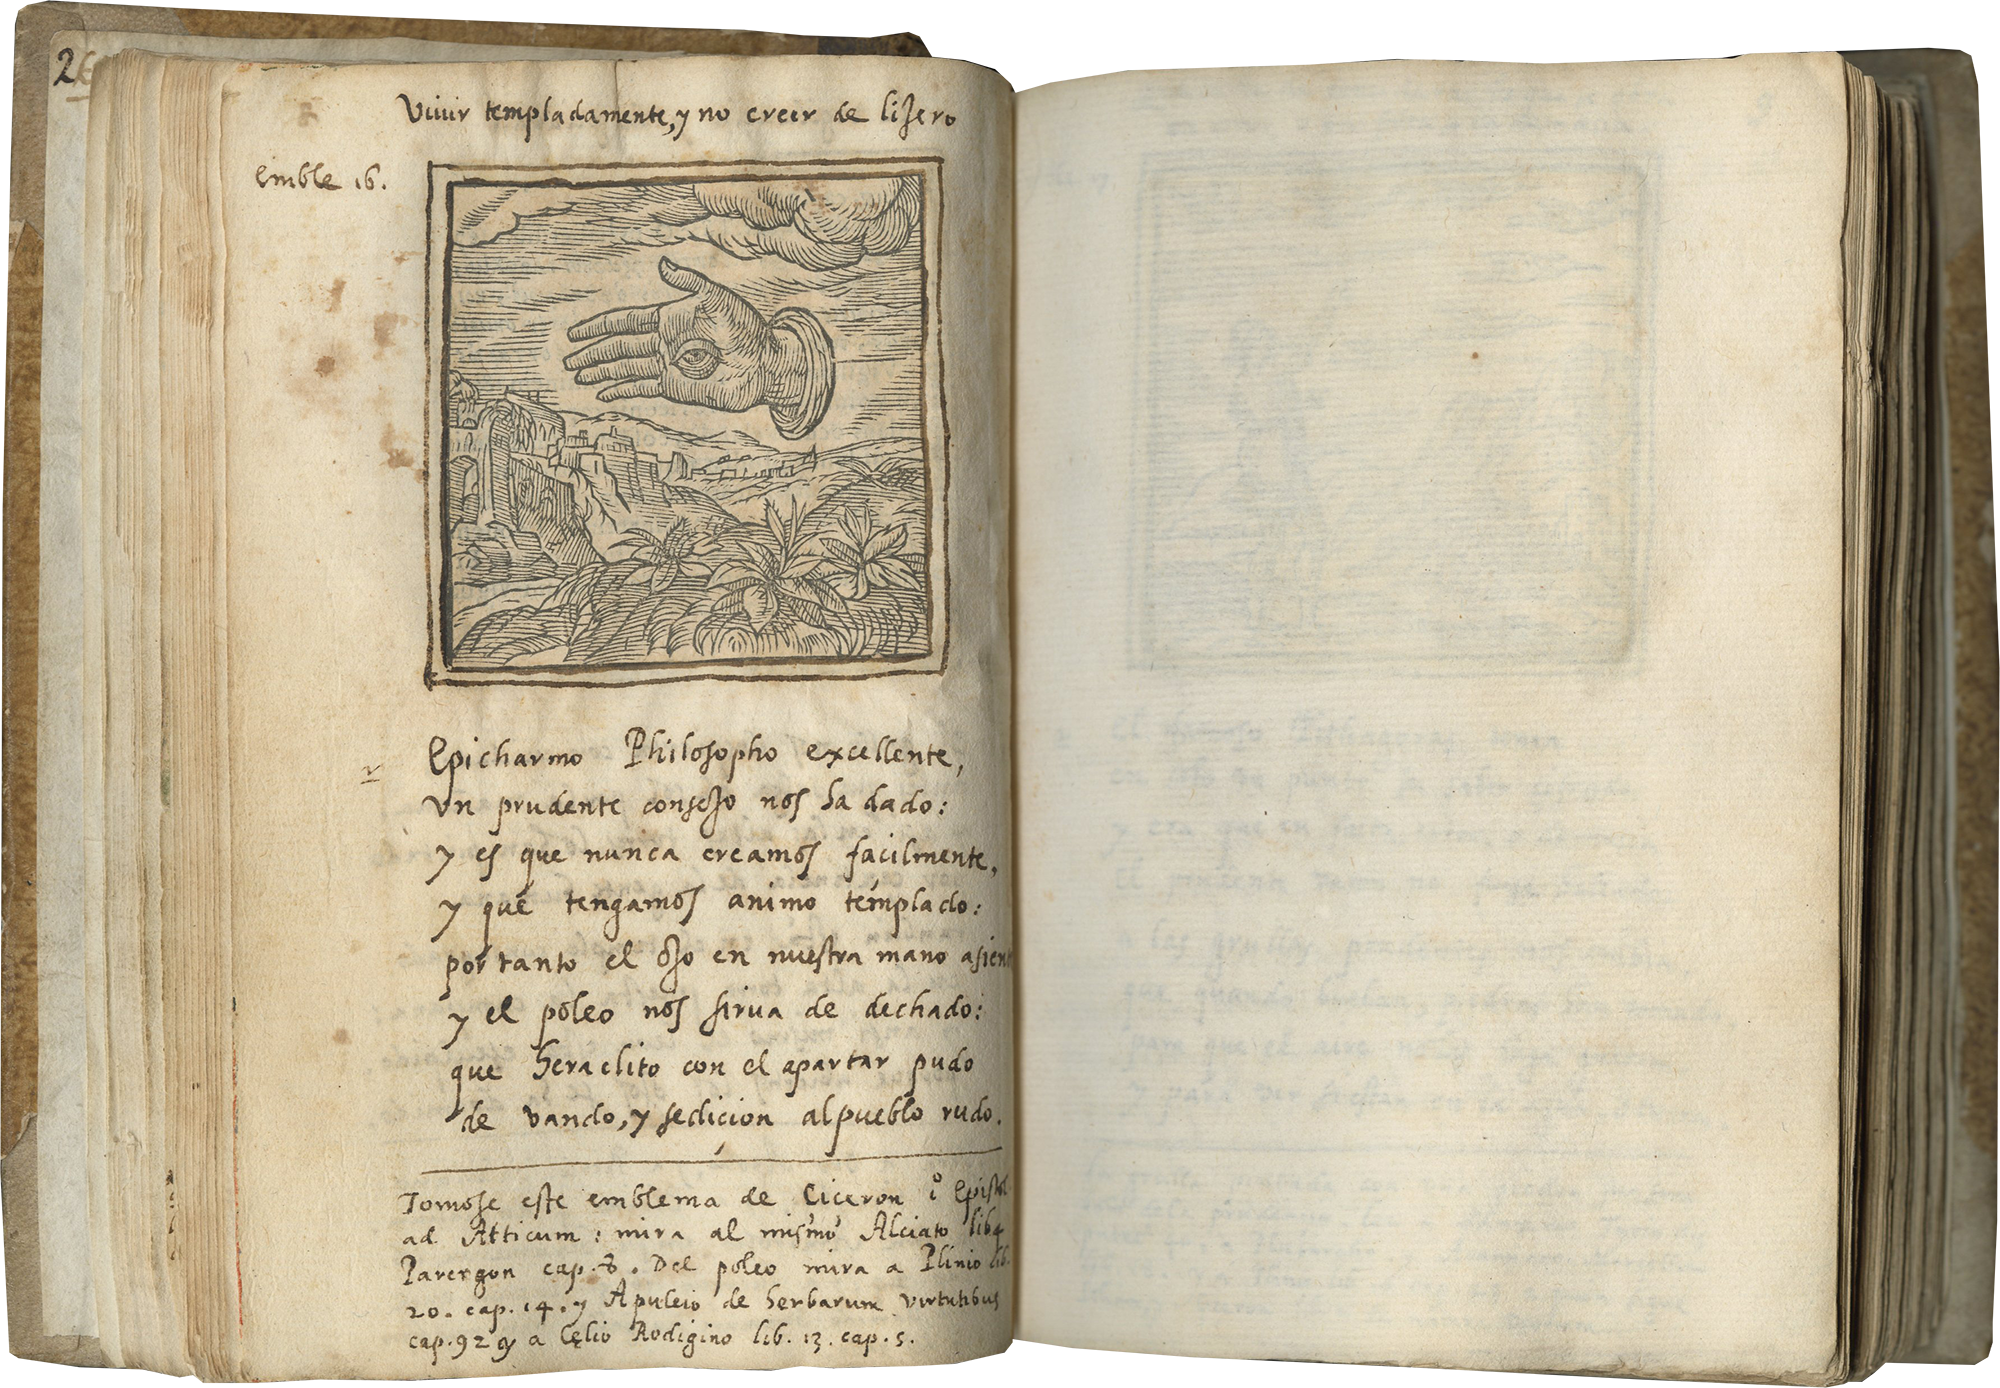 26
Viuir templadamente, y no creer de lijero
Emble 16.
Epicharmo Philosopho excellente,
vn prudente consejo nos ha dado:
y es que nunca creamos facilmente,
y que tengamos animo templado:
por tanto el ojo en nuestra mano asient
y el poleo nos sirua de dechado:
que heraclito con el apartar pudo
de vando, y sedicion al pueblo rudo.
Tomose este emblema de Ciceron Epistol
ad Atticum: mira al mismo Alciato lib 4
Parergon cap. 8. Del poleo mira a Plinio lib.
20. cap. 14. y Apuleio de herbarum virtutibus
cap. 92 y a Cęlio Rodigino lib. 13. cap. 5.